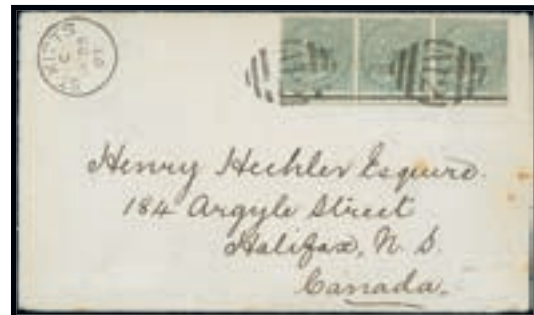 ST KITTS
A12
A12
Henry Hechler Esquire.
184 Argyle Street
Halifax, N. S.
Canada.